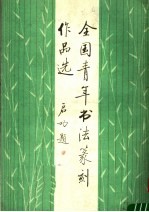 全国青年书法篆刻
作品选
启功题